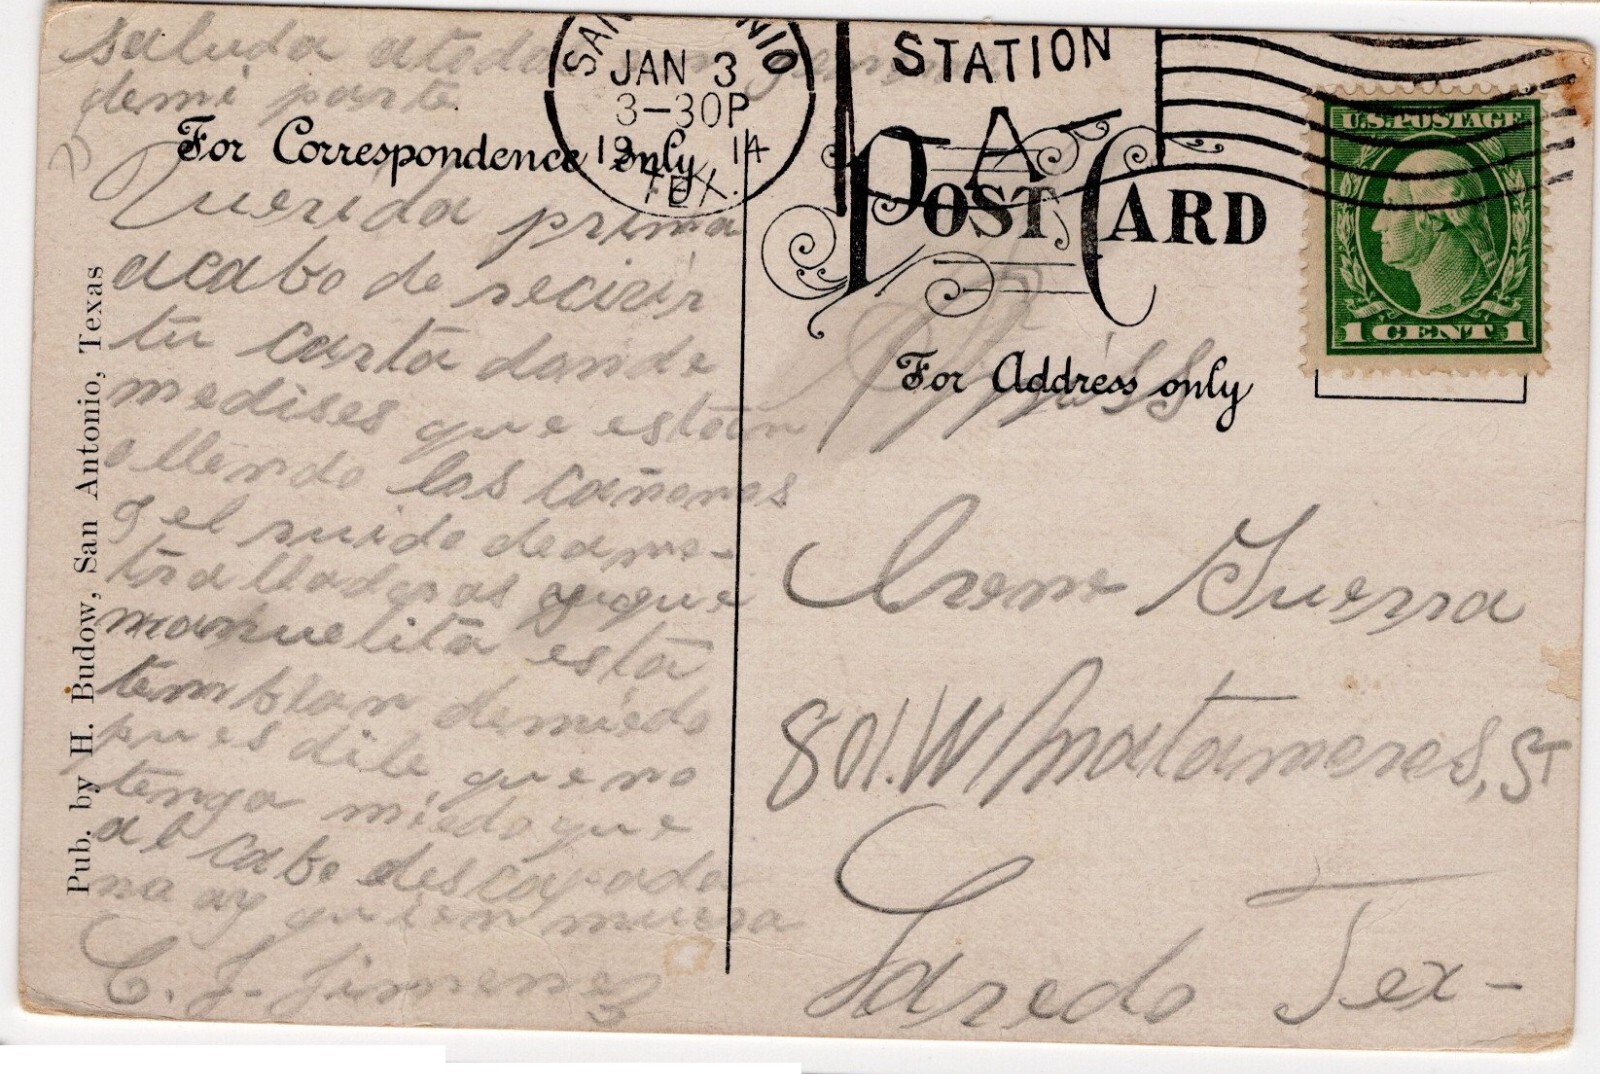 saluda atoda
demi parte
For Correspondence only
Querida prima
acabo de recivir
tu carta dande
medises que estan
ollendo los cañones
y el ruido deame-
tralladoras y que
manuelita esta
temblan demiedo
pues dile que no
tenga miedo que
al cabo descapada
no ay quien muera
C. J. Jimenez
Pub. by H. Budow, San Antonio, Texas
SAN ANTONIO
JAN 3
3-30P
1914
TEX.
STATION
A
U.S. POSTAGE
1 CENT 1
POST CARD
For Address only
Miss
Irene Guerra
801. W Matamoros, St
Laredo Tex-